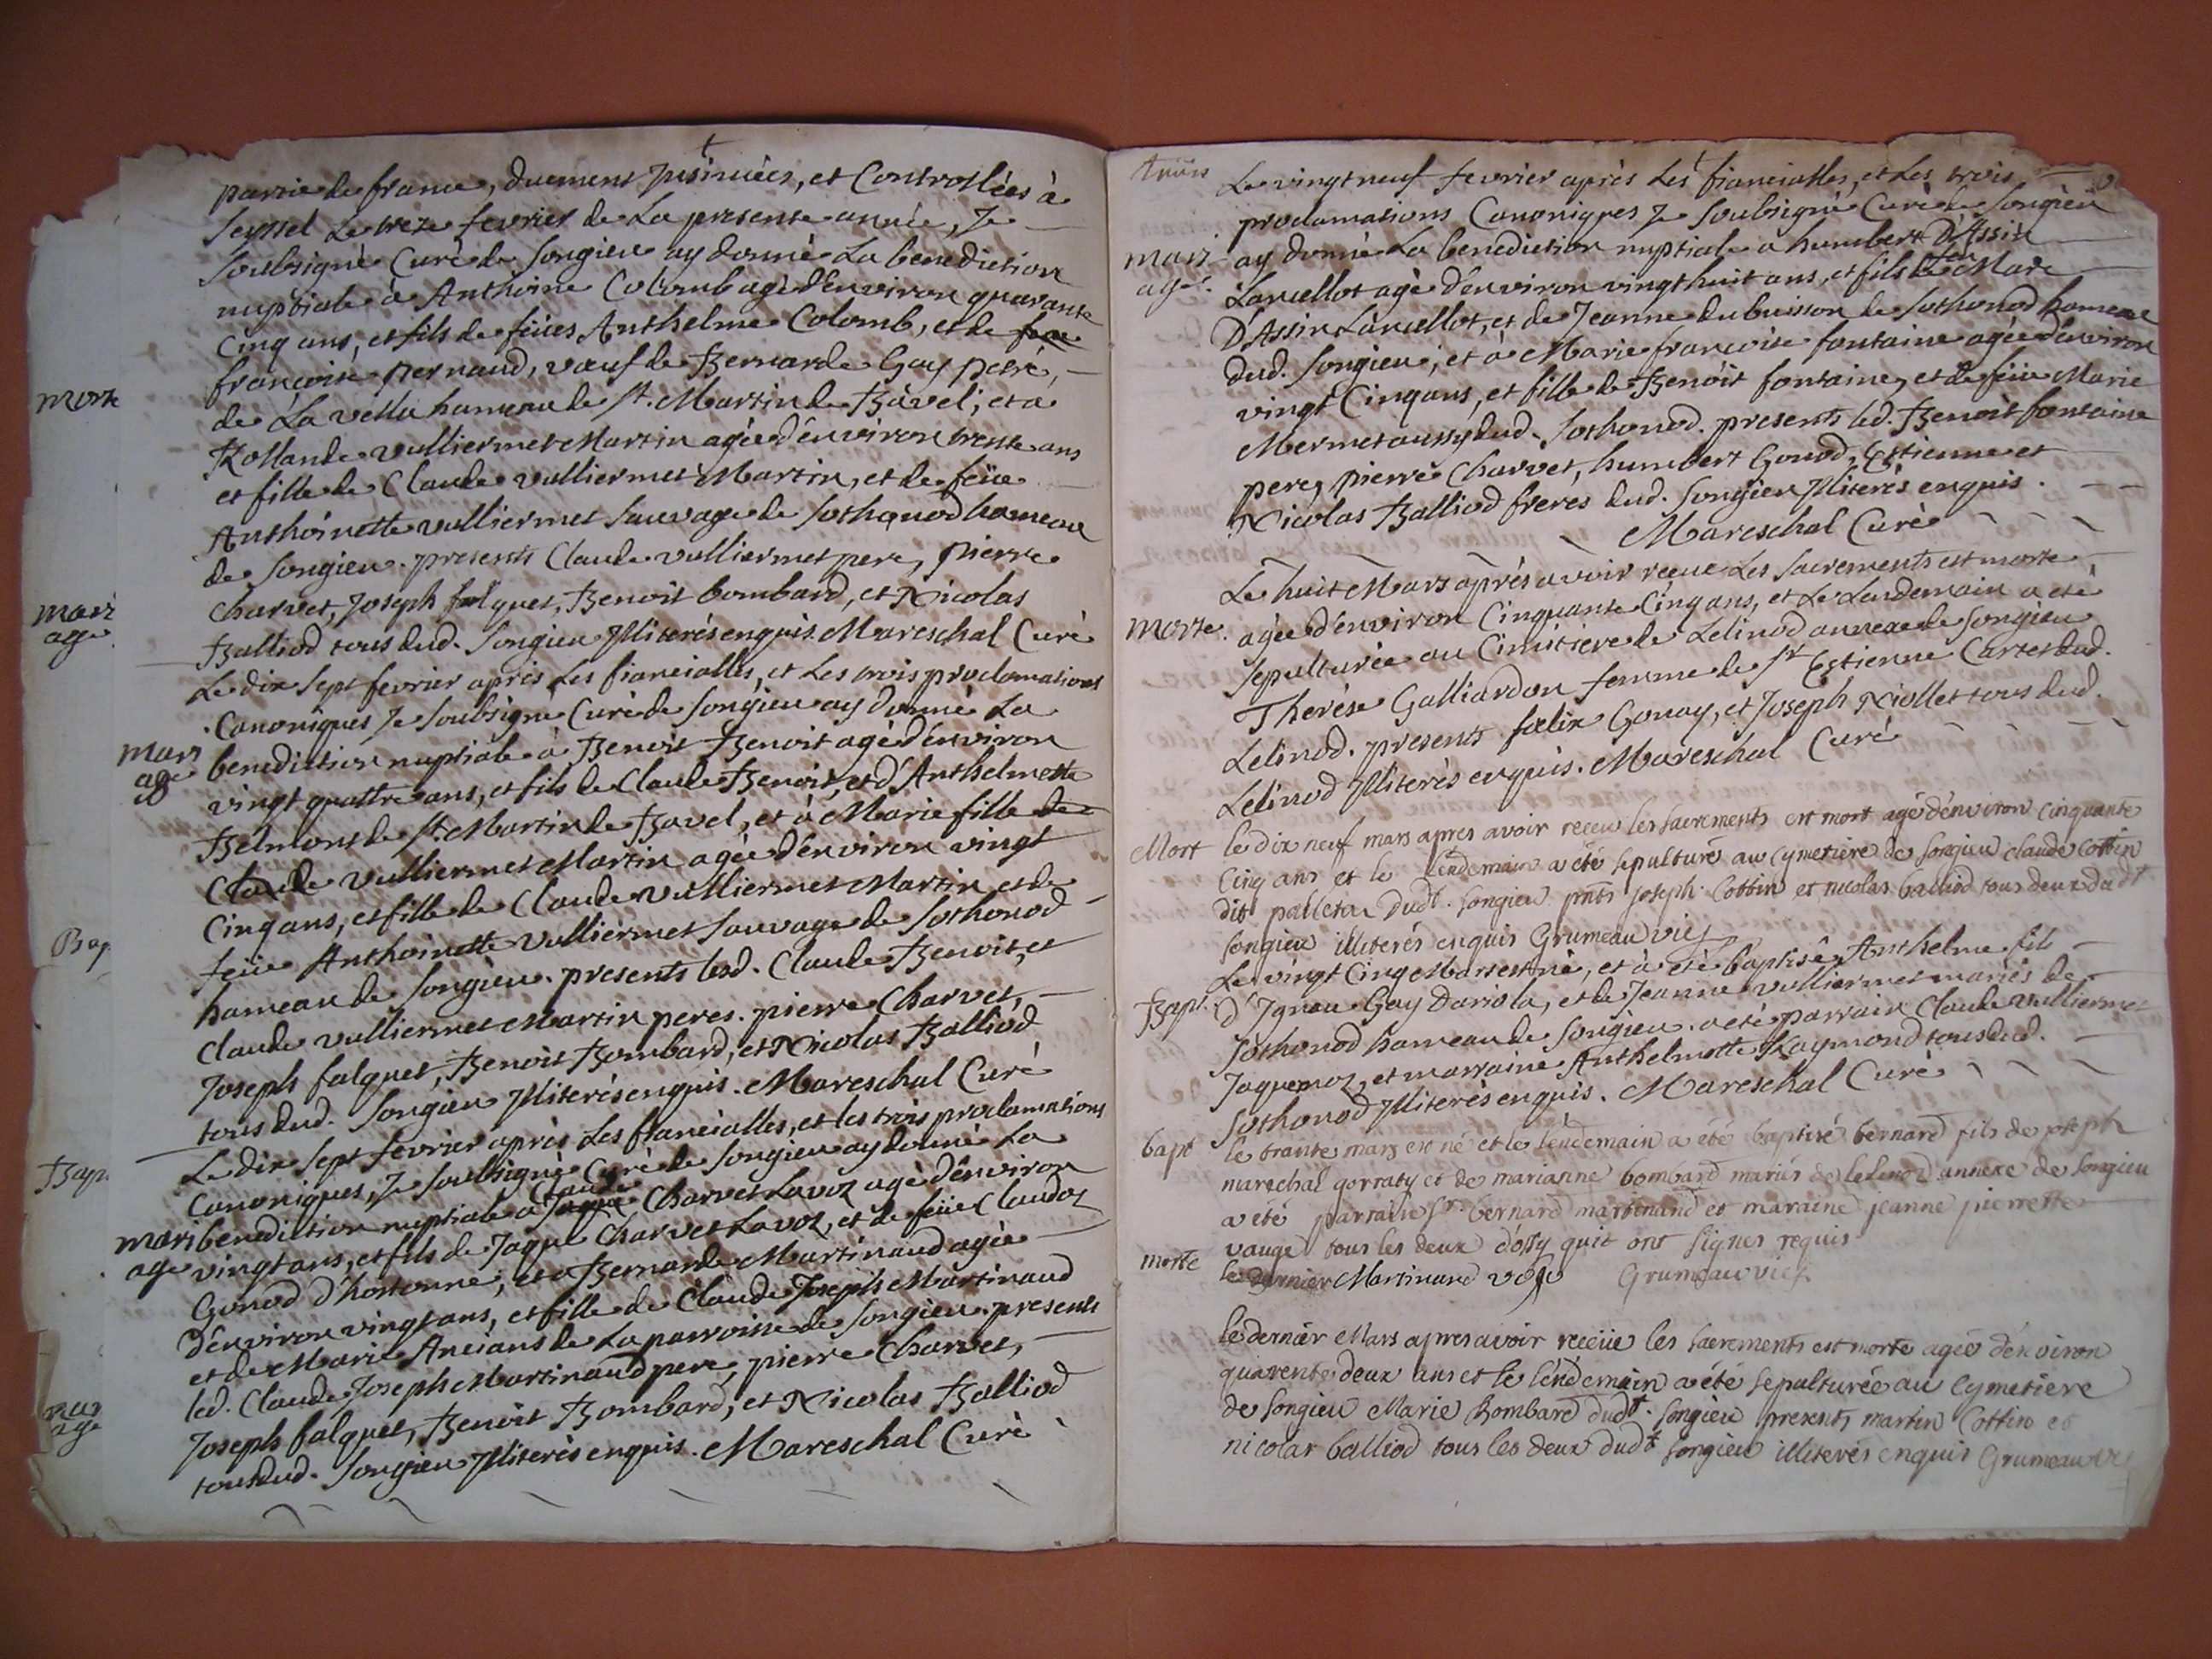 partie de france, duement Insinuées, et Controllées à
Seyssel Le treze fevrier de La presente année, Je
Soubsigné Curé de Songieu ay donné La benediction
nuptiale à Anthoine Colomb agé d'environ quarante
Cinq ans, et fils de feües Anthelme Colomb, et de
françoise pernaud, vœuf de Bernarde Gay petré,
morte
de La vella hameau de St. Martin de Bavel; et a
Rollande vulliermet Martin agée d'environ trente ans
et fille de Claude vulliermet Martin, et de feüe
Anthoinette vulliermet Sauvage de Sothonod hameau
de Songieu. presents Claude vulliermet pere, pierre
Charvet, Joseph falquet, Benoit bombard, et Nicolas
mari
age
Balliod tous dud. Songieu Illiterés enquis. Mareschal Curé
Le dix Sept fevrier après Les fiancialles, et Les trois proclamations
Canoniques Je Soubsigné Curé de Songieu ay donné La
mari
age
benediction nuptiale à Benoit Benoit agé d'environ
vingt quattre ans, et fils de Claude Benoit, et d'Anthelmette
Belmont de St. Martin de Bavel, et à Marie fille de
Claude vulliermet Martin agée d'environ vingt
Cinq ans, et fille de Claude vulliermet Martin, et de
Bap.
feüe Anthoinette vulliermet Sauvage de Sothonod
hameau de Songieu. presents lesd. Claude Benoit, et
Claude vulliermet Martin peres. pierre Charvet,
Joseph falquet, Benoit Bombard, et Nicolas Balliod
tous dud. Songieu Illiterés enquis. Mareschal Curé
Le dix Sept fevrier après Les fiancialles, et les trois proclamations
Bap.
Canoniques, Je Soubsigné Curé de Songieu ay donné La
Claude
mari
age
benediction nuptiale a Jaque Charvet Lavoz agé d'environ
vingt ans, et fils de Jaque Charvet Lavoz, et de feüe Claudaz
Gonod d'hostonne, et a Bernarde Martinaud agée
d'environ vingt ans, et fille de Claude Joseph Martinaud
et de Marie Ancians de La parroisse de Songieu. presents
led. Claude Joseph Martinaud pere, pierre Charvet,
mari
age
Joseph falquet, Benoit Bombard, et Nicolas Balliod
tous dud. Songieu Illiterés enquis. Mareschal Curé
trois
Le vingt neuf fevrier après Les fiancialles, et Les trois
proclamations Canoniques Je Soubsigné Curé de Songieu
mari
age.
ay donné La benediction nuptiale a humbert D'Assin
Lancellot agé d'environ vingt huit ans, et fils de feu Marc
D'Assin Lancellot, et de Jeanne dubuisson de Sothonod hameau
dud. Songieu; et à Marie françoise fontaine agée d'environ
vingt Cinq ans, et fille de Benoit fontaine, et de feüe Marie
Mermet aussy dud. Sothonod. presents led. Benoit fontaine
pere, pierre Charvet, humbert Gonod, Estienne et
Nicolas Balliod freres dud. Songieu Illiterés enquis.
Mareschal Curé
Le huit Mars après avoir receu Les Sacrements est morte
morte.
agée d'environ Cinquante Cinq ans, et Le Lendemain a eté
Sepulturée au Cimetiere de Lelinod annexe de Songieu
Therése Galliardon femme de Sr. Estienne Cartet dud.
Lelinod. presents fœlix Gonay, et Joseph Niollet tous dud.
Lelinod Illiterés enquis. Mareschal Curé
Mort
le dix neuf mars apres avoir receu les Sacrements est mort agé d'environ cinquante
Cinq ans et le lendemain a été Sepulturé au Cymetiere de Songieu Claude Cottin
dit pailleta dudt. Songieu pnts joseph Cottin et nicolas balliod tous deux dudt
Songieu illiterés enquis Grumeau vic.
Le vingt Cinq Mars est né, et à eté baptisé Anthelme fils
Bapt.
d'Ignace Gay Dariola, et de Jeanne vulliermet mariés de
Sothonod hameau de Songieu. a eté parrain Claude vulliermet
Jaquemoz, et marraine Anthelmette Raymond tous dud.
Sothonod Illiterés enquis. Mareschal Curé
bapt
le trante mars est né et le lendemain a été baptisé bernard fils de joseph
mareschal gorraty et de marianne bombard mariés de lelinod annexe de Songieu
a été parrain Sr. bernard martinand et maraine jeanne pierrette
vauge tous les deux d'ossy qui ont signes requis
morte
le dernier Martinand Grumeau vic.
le dernier Mars apres avoir receüe les Sacrements est morte agée d'environ
quarente deux ans et le lendemain a été Sepulturée au Cymetiere
de Songieu Marie Bombard dudt. Songieu presents martin Cottin et
nicolas balliod tous les deux dudt Songieu illiterés enquis Grumeau vic